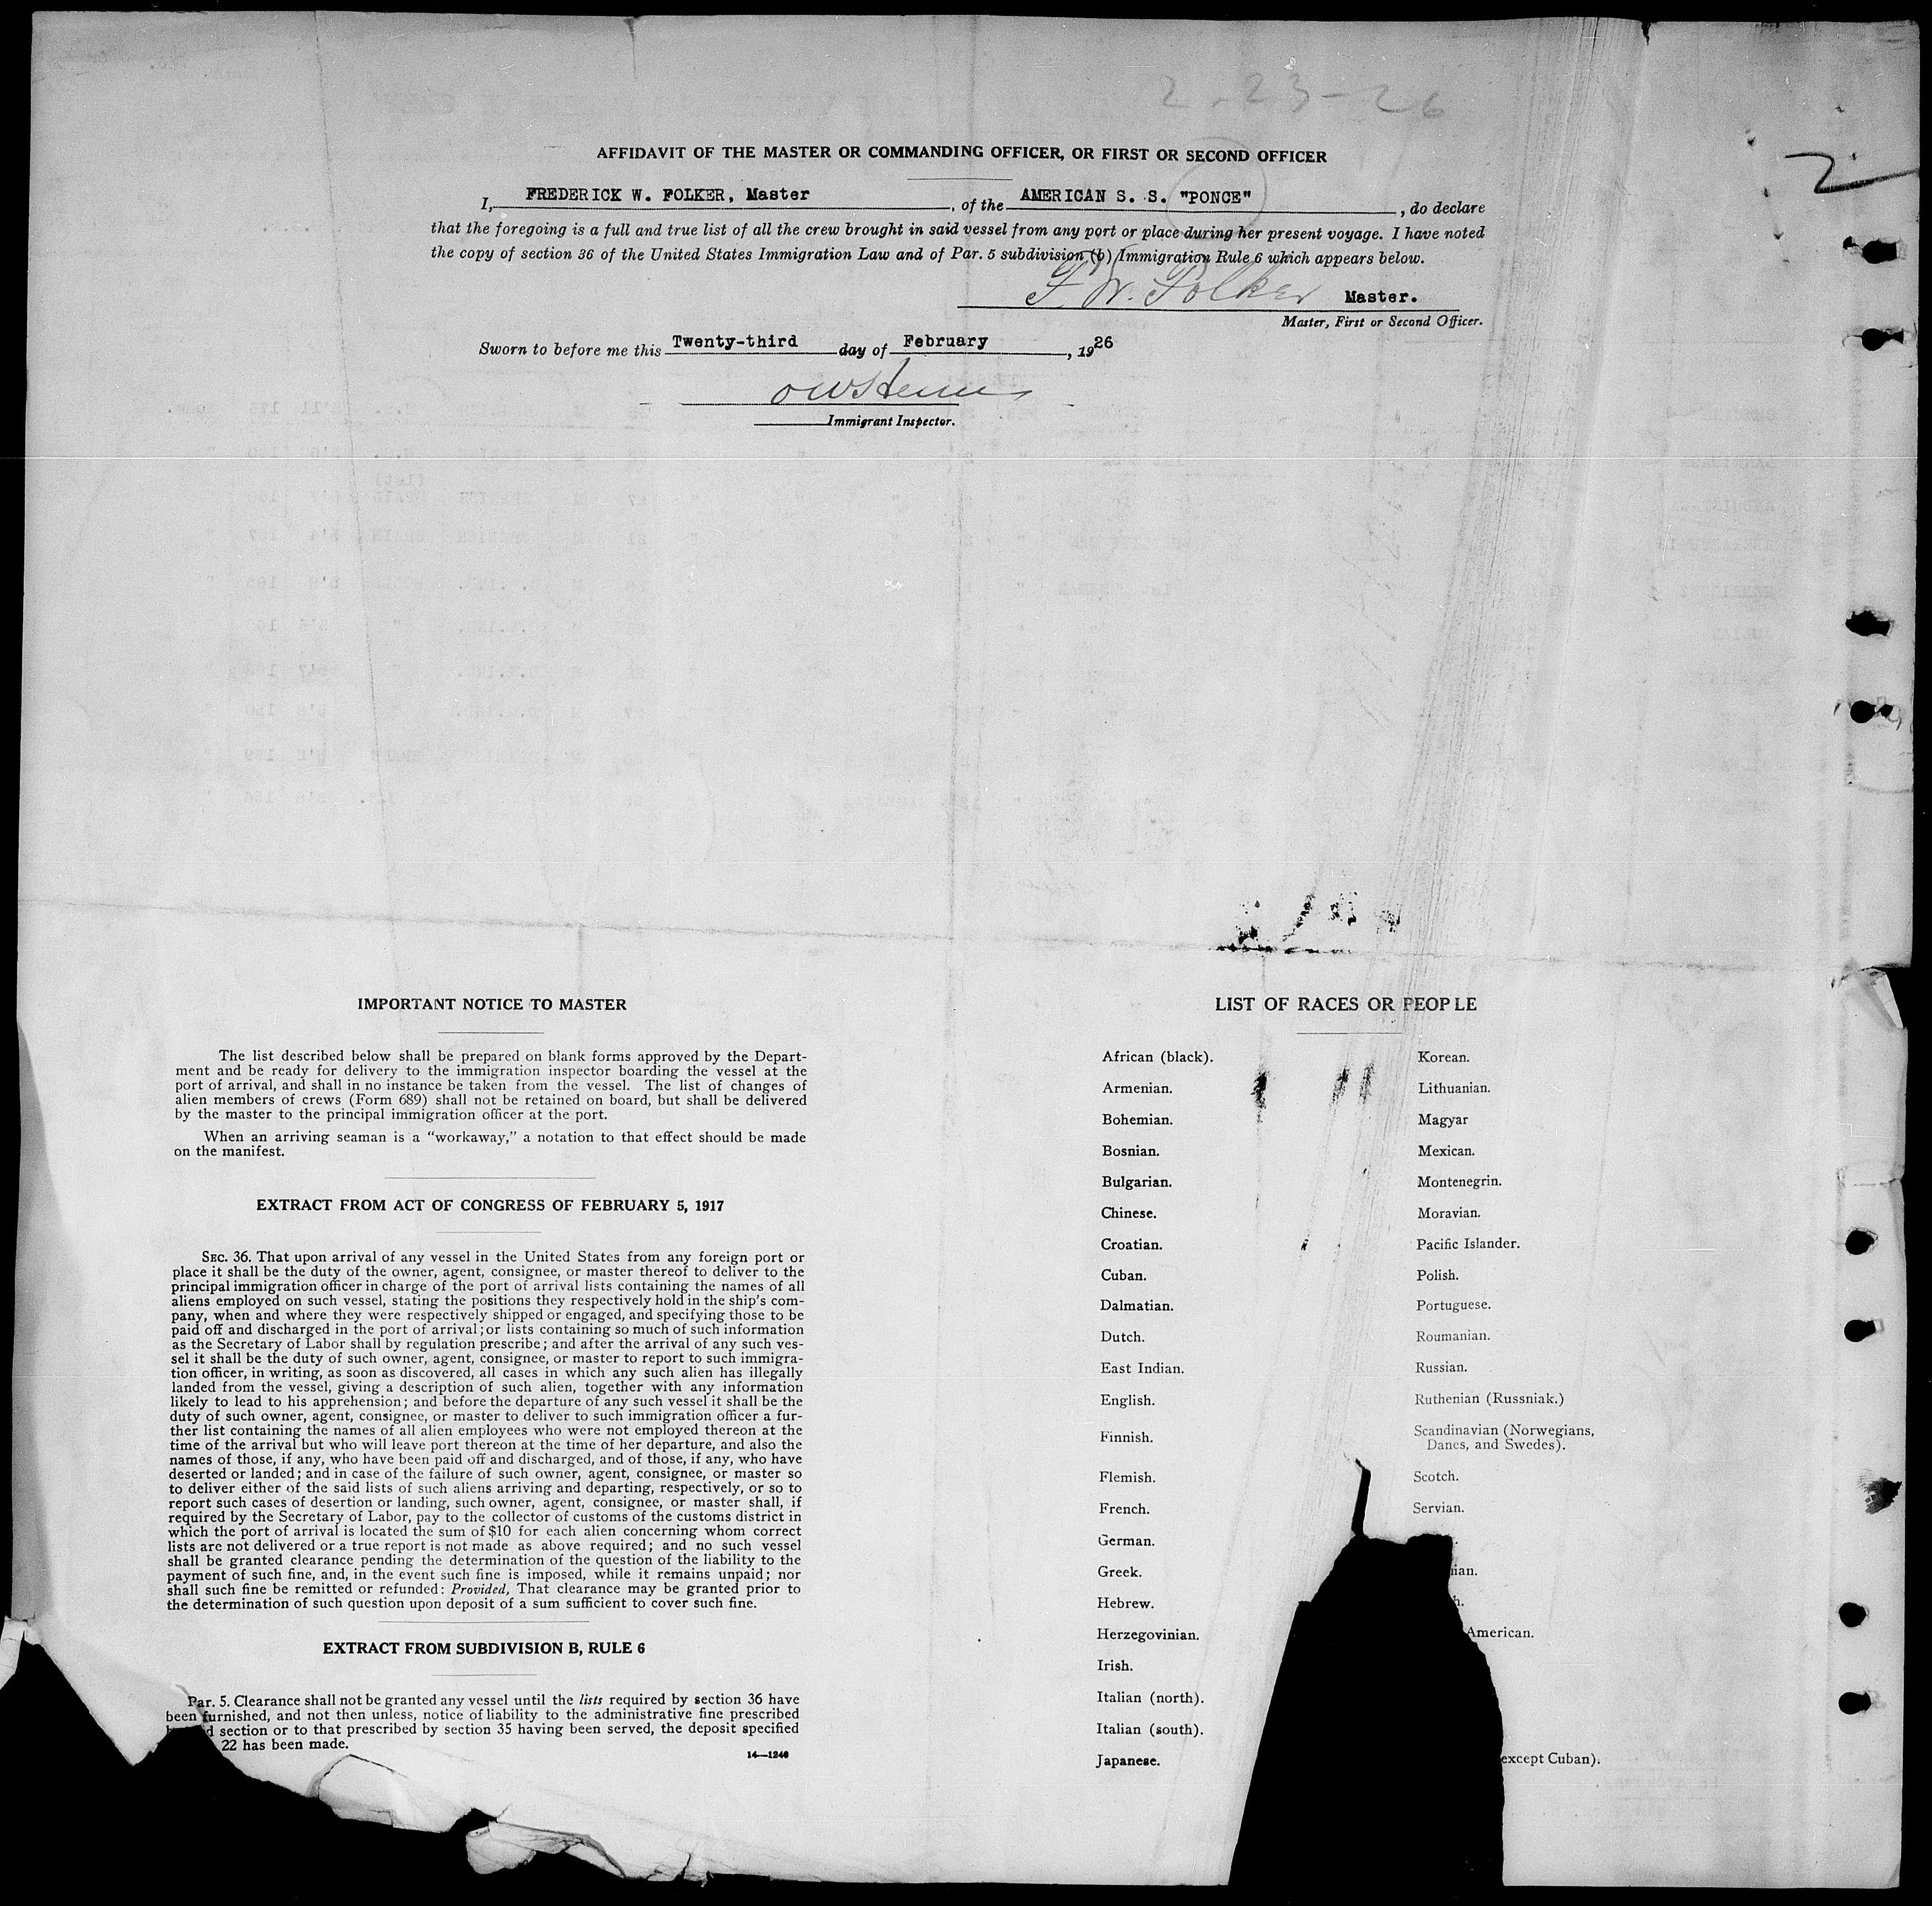 2-23-26
2
AFFIDAVIT OF THE MASTER OR COMMANDING OFFICER, OR FIRST OR SECOND OFFICER
I, FREDERICK W. FOLKER, Master, of the AMERICAN S. S. "PONCE", do declare
that the foregoing is a full and true list of all the crew brought in said vessel from any port or place during her present voyage. I have noted
the copy of section 36 of the United States Immigration Law and of Par. 5 subdivision (b) Immigration Rule 6 which appears below.
F. W. Folker Master.
Master, First or Second Officer.
Sworn to before me this Twenty-third day of February, 1926
Immigrant Inspector.
IMPORTANT NOTICE TO MASTER
The list described below shall be prepared on blank forms approved by the Depart-
ment and be ready for delivery to the immigration inspector boarding the vessel at the
port of arrival, and shall in no instance be taken from the vessel. The list of changes of
alien members of crews (Form 689) shall not be retained on board, but shall be delivered
by the master to the principal immigration officer at the port.
When an arriving seaman is a "workaway," a notation to that effect should be made
on the manifest.
EXTRACT FROM ACT OF CONGRESS OF FEBRUARY 5, 1917
SEC. 36. That upon arrival of any vessel in the United States from any foreign port or
place it shall be the duty of the owner, agent, consignee, or master thereof to deliver to the
principal immigration officer in charge of the port of arrival lists containing the names of all
aliens employed on such vessel, stating the positions they respectively hold in the ship's com-
pany, when and where they were respectively shipped or engaged, and specifying those to be
paid off and discharged in the port of arrival; or lists containing so much of such information
as the Secretary of Labor shall by regulation prescribe; and after the arrival of any such ves-
sel it shall be the duty of such owner, agent, consignee, or master to report to such immigra-
tion officer, in writing, as soon as discovered, all cases in which any such alien has illegally
landed from the vessel, giving a description of such alien, together with any information
likely to lead to his apprehension; and before the departure of any such vessel it shall be the
duty of such owner, agent, consignee, or master to deliver to such immigration officer a fur-
ther list containing the names of all alien employees who were not employed thereon at the
time of the arrival but who will leave port thereon at the time of her departure, and also the
names of those, if any, who have been paid off and discharged, and of those, if any, who have
deserted or landed; and in case of the failure of such owner, agent, consignee, or master so
to deliver either of the said lists of such aliens arriving and departing, respectively, or so to
report such cases of desertion or landing, such owner, agent, consignee, or master shall, if
required by the Secretary of Labor, pay to the collector of customs of the customs district in
which the port of arrival is located the sum of $10 for each alien concerning whom correct
lists are not delivered or a true report is not made as above required; and no such vessel
shall be granted clearance pending the determination of the question of the liability to the
payment of such fine, and, in the event such fine is imposed, while it remains unpaid; nor
shall such fine be remitted or refunded: Provided, That clearance may be granted prior to
the determination of such question upon deposit of a sum sufficient to cover such fine.
EXTRACT FROM SUBDIVISION B, RULE 6
Par. 5. Clearance shall not be granted any vessel until the lists required by section 36 have
been furnished, and not then unless, notice of liability to the administrative fine prescribed
section or to that prescribed by section 35 having been served, the deposit specified
22 has been made.
14—1240
LIST OF RACES OR PEOPLE
African (black).
Armenian.
Bohemian.
Bosnian.
Bulgarian.
Chinese.
Croatian.
Cuban.
Dalmatian.
Dutch.
East Indian.
English.
Finnish.
Flemish.
French.
German.
Greek.
Hebrew.
Herzegovinian.
Irish.
Italian (north).
Italian (south).
Japanese.
Korean.
Lithuanian.
Magyar
Mexican.
Montenegrin.
Moravian.
Pacific Islander.
Polish.
Portuguese.
Roumanian.
Russian.
Ruthenian (Russniak.)
Scandinavian (Norwegians,
Danes, and Swedes).
Scotch.
Servian.
American.
except Cuban).